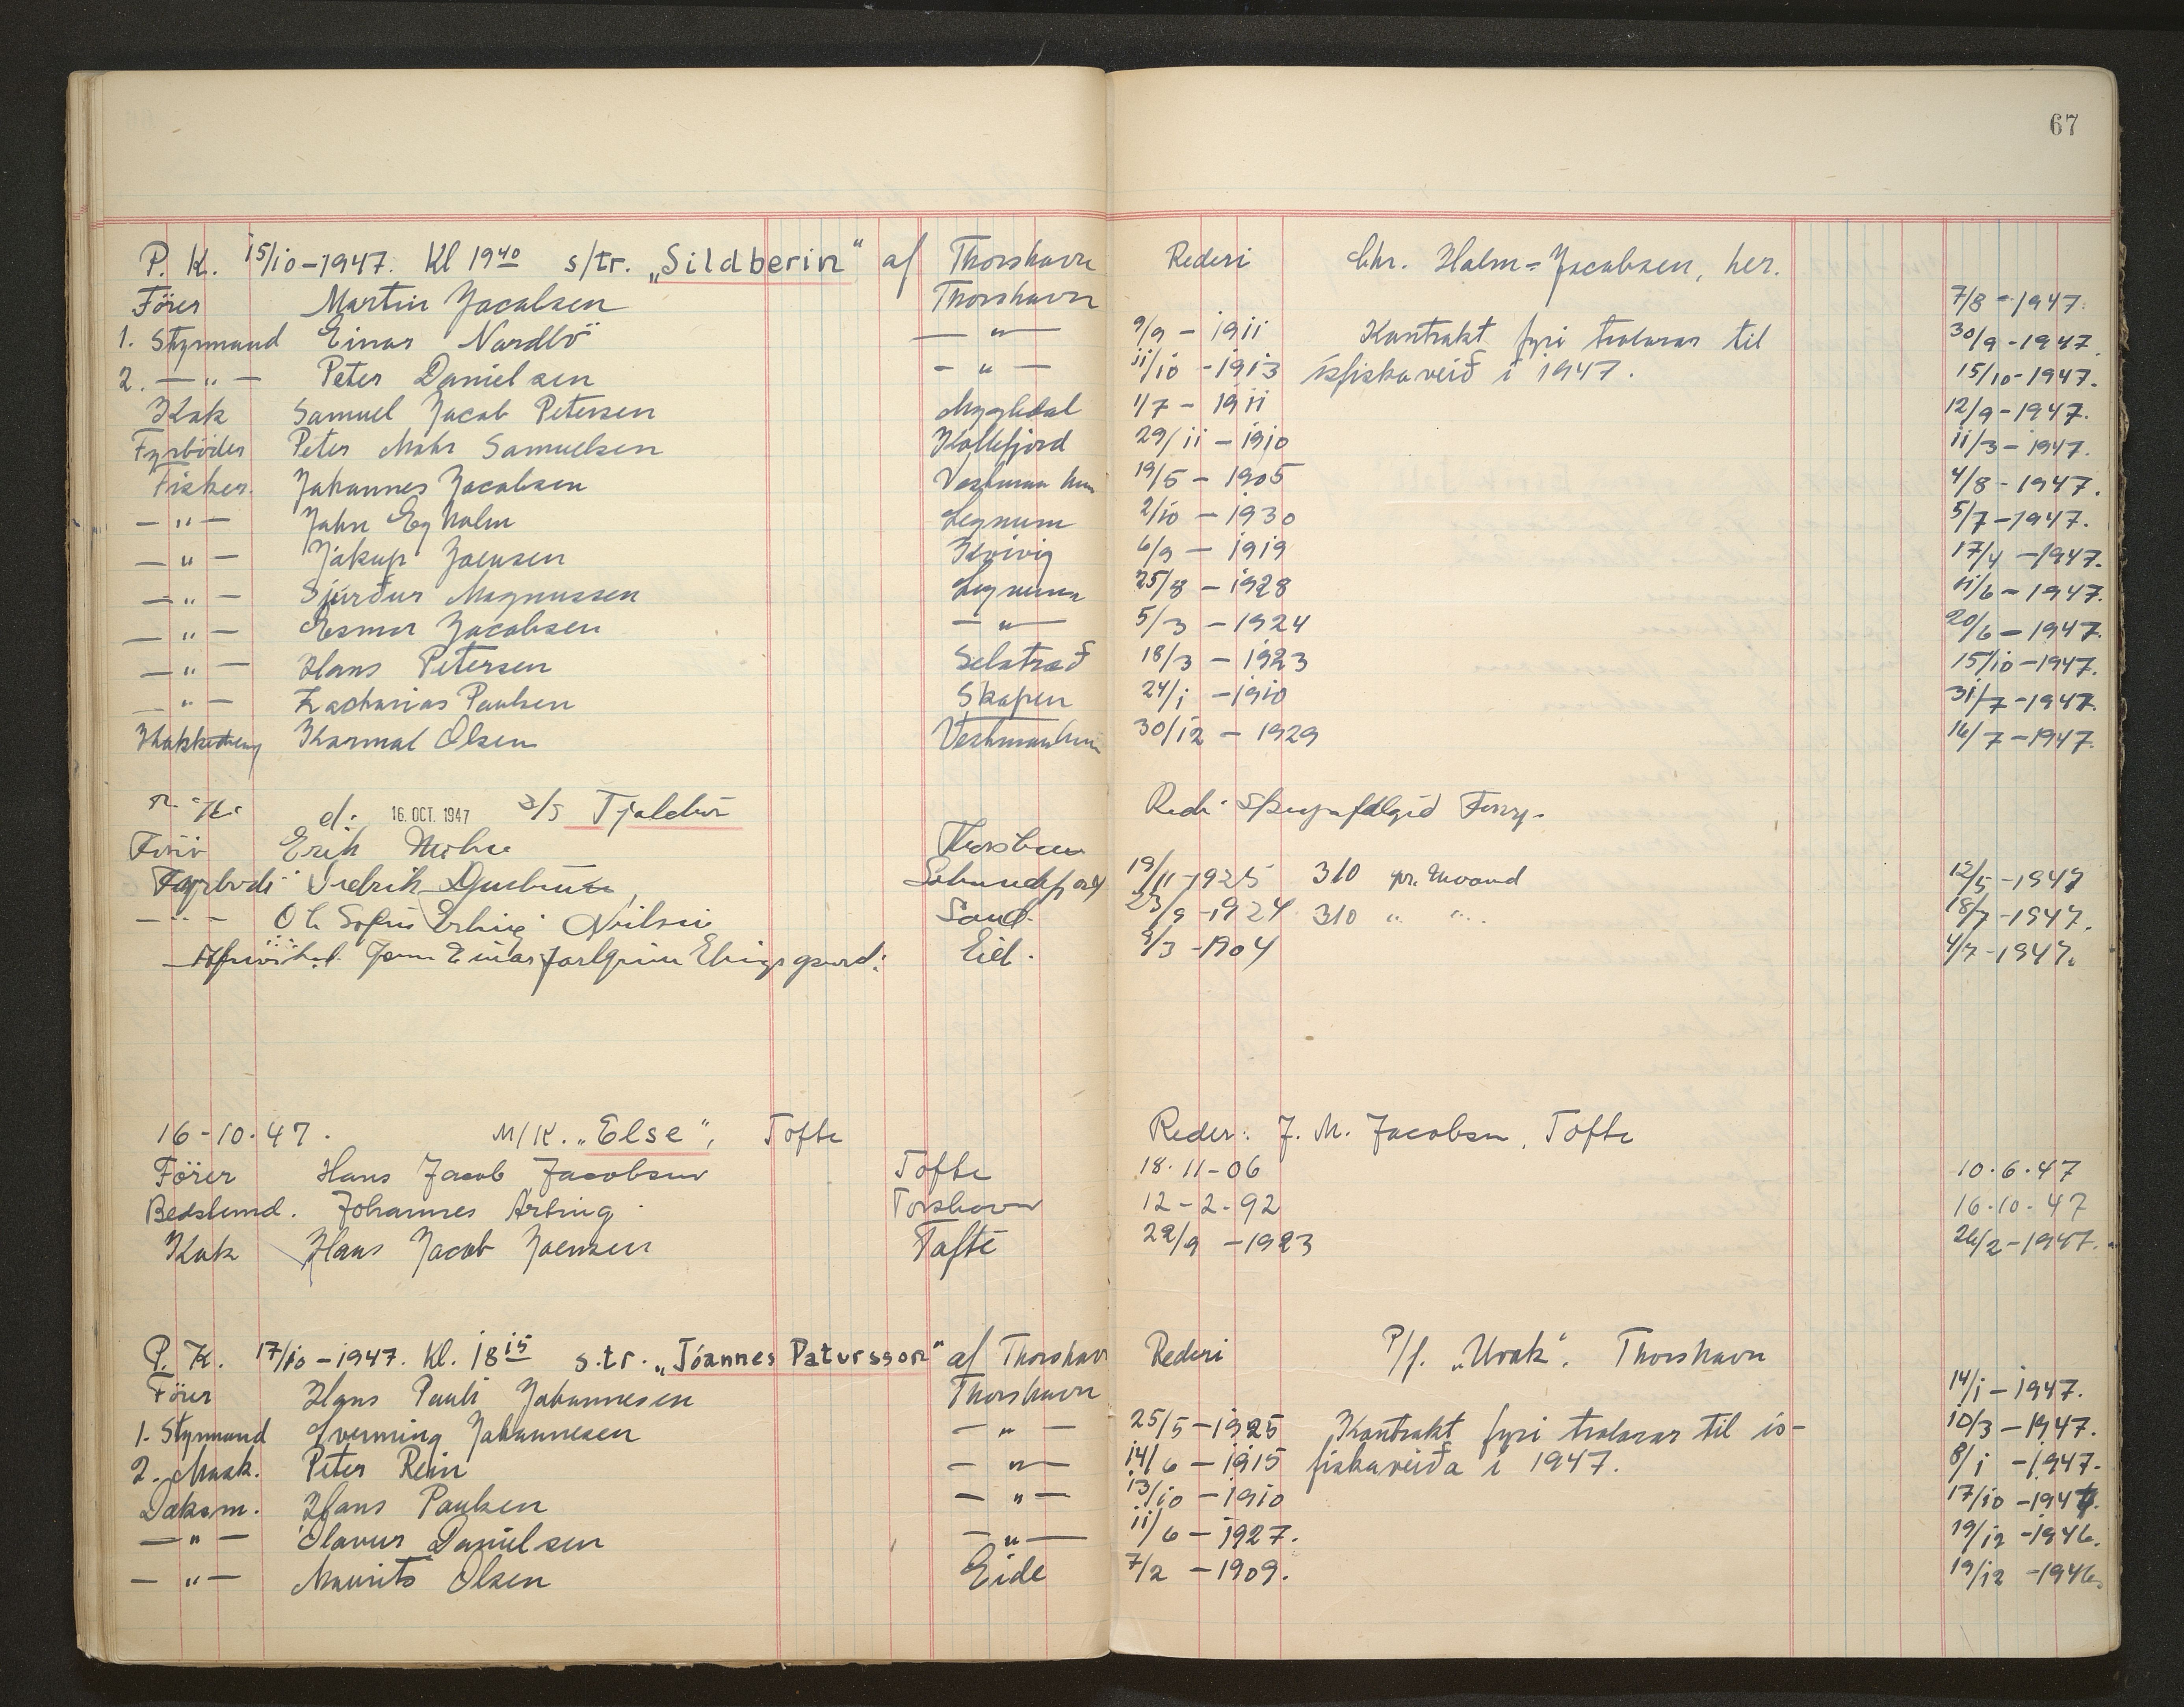 67
P. K. 15/10-1947. Kl 19 40 s/tr. „Sildberin" af Thorshavn Rederi Chr. Holm=Jacobsen, her.
Förer Martin Jacobsen Thorshavn 7/8-1947.
1. Styrmand Einar Nordbö — " — 9/9 - 1911 Kontrakt fyri trolarar til 30/9-1947.
2. — " — Peter Danielsen — " — 11/10 - 1913 ísfiskaveið i 1947. 15/10-1947.
Kok Samuel Jacob Petersen 1/7 - 1911 12/9-1947.
Fyrböder Peter Mohr Samuelsen Kollefjord 29/11 - 1910 11/3-1947.
Fisker. Johannes Jacobsen 19/5 - 1905 4/8-1947.
— " — John Egholm Legnum 2/10 - 1930 5/7-1947.
— " — Jákup Joensen Kvivig 6/9 - 1919 17/4-1947.
— " — Sjúrður Magnussen Legnum 25/8 - 1928 11/6-1947.
— " — Esmar Jacobsen — " — 5/3 - 1924 20/6-1947.
— " — Hans Petersen Selatrað 18/3 - 1923 15/10-1947.
— " — Zacharias Paulsen Skopen 24/1 - 1910 31/7-1947.
Karmal Olsen 30/12 - 1929 16/7-1947.
d: 16. OCT. 1947 S/S Tjaldur
Erik Thorshavn
Fyrbödi 19/11-1925 310 12/5-1947
— " — Sand 23/9-1924 310 " " 18/7-1947.
Eid. 9/3-1904 4/7-1947.
16-10.47. M/K. „Else", Tofte Reder: J. M. Jacobsen, Tofte
Förer Hans Jacob Jacobsen Tofte 18.11-06 10.6.47
Bedstemd. Johannes Arting Torshavn 12-2-92 16.10.47
Kok Hans Jacob Joensen Tofte 22/9 - 1923 26/2-1947.
P. K. 17/10-1947. Kl. 18 15 s.tr. „Jóannes Patursson" af Thorshavn Rederi P/f. „Urak". Thorshavn
Förer Hans Pauli Johannesen Thorshavn 14/1-1947.
1. Styrmand Johannesen — " — 25/5-1925 Kontrakt fyri trolarar til ís- 10/3-1947.
2. Mask. Peter Rein — " — 14/6-1915 fiskaveiða i 1947. 8/1-1947.
Daksm. Hans Paulsen — " — 13/10-1910 17/10-1947.
— " — Olavur Danielsen — " — 11/6-1927. 19/12-1946.
— " — Maurits Olsen Eide 7/2-1909. 19/12-1946